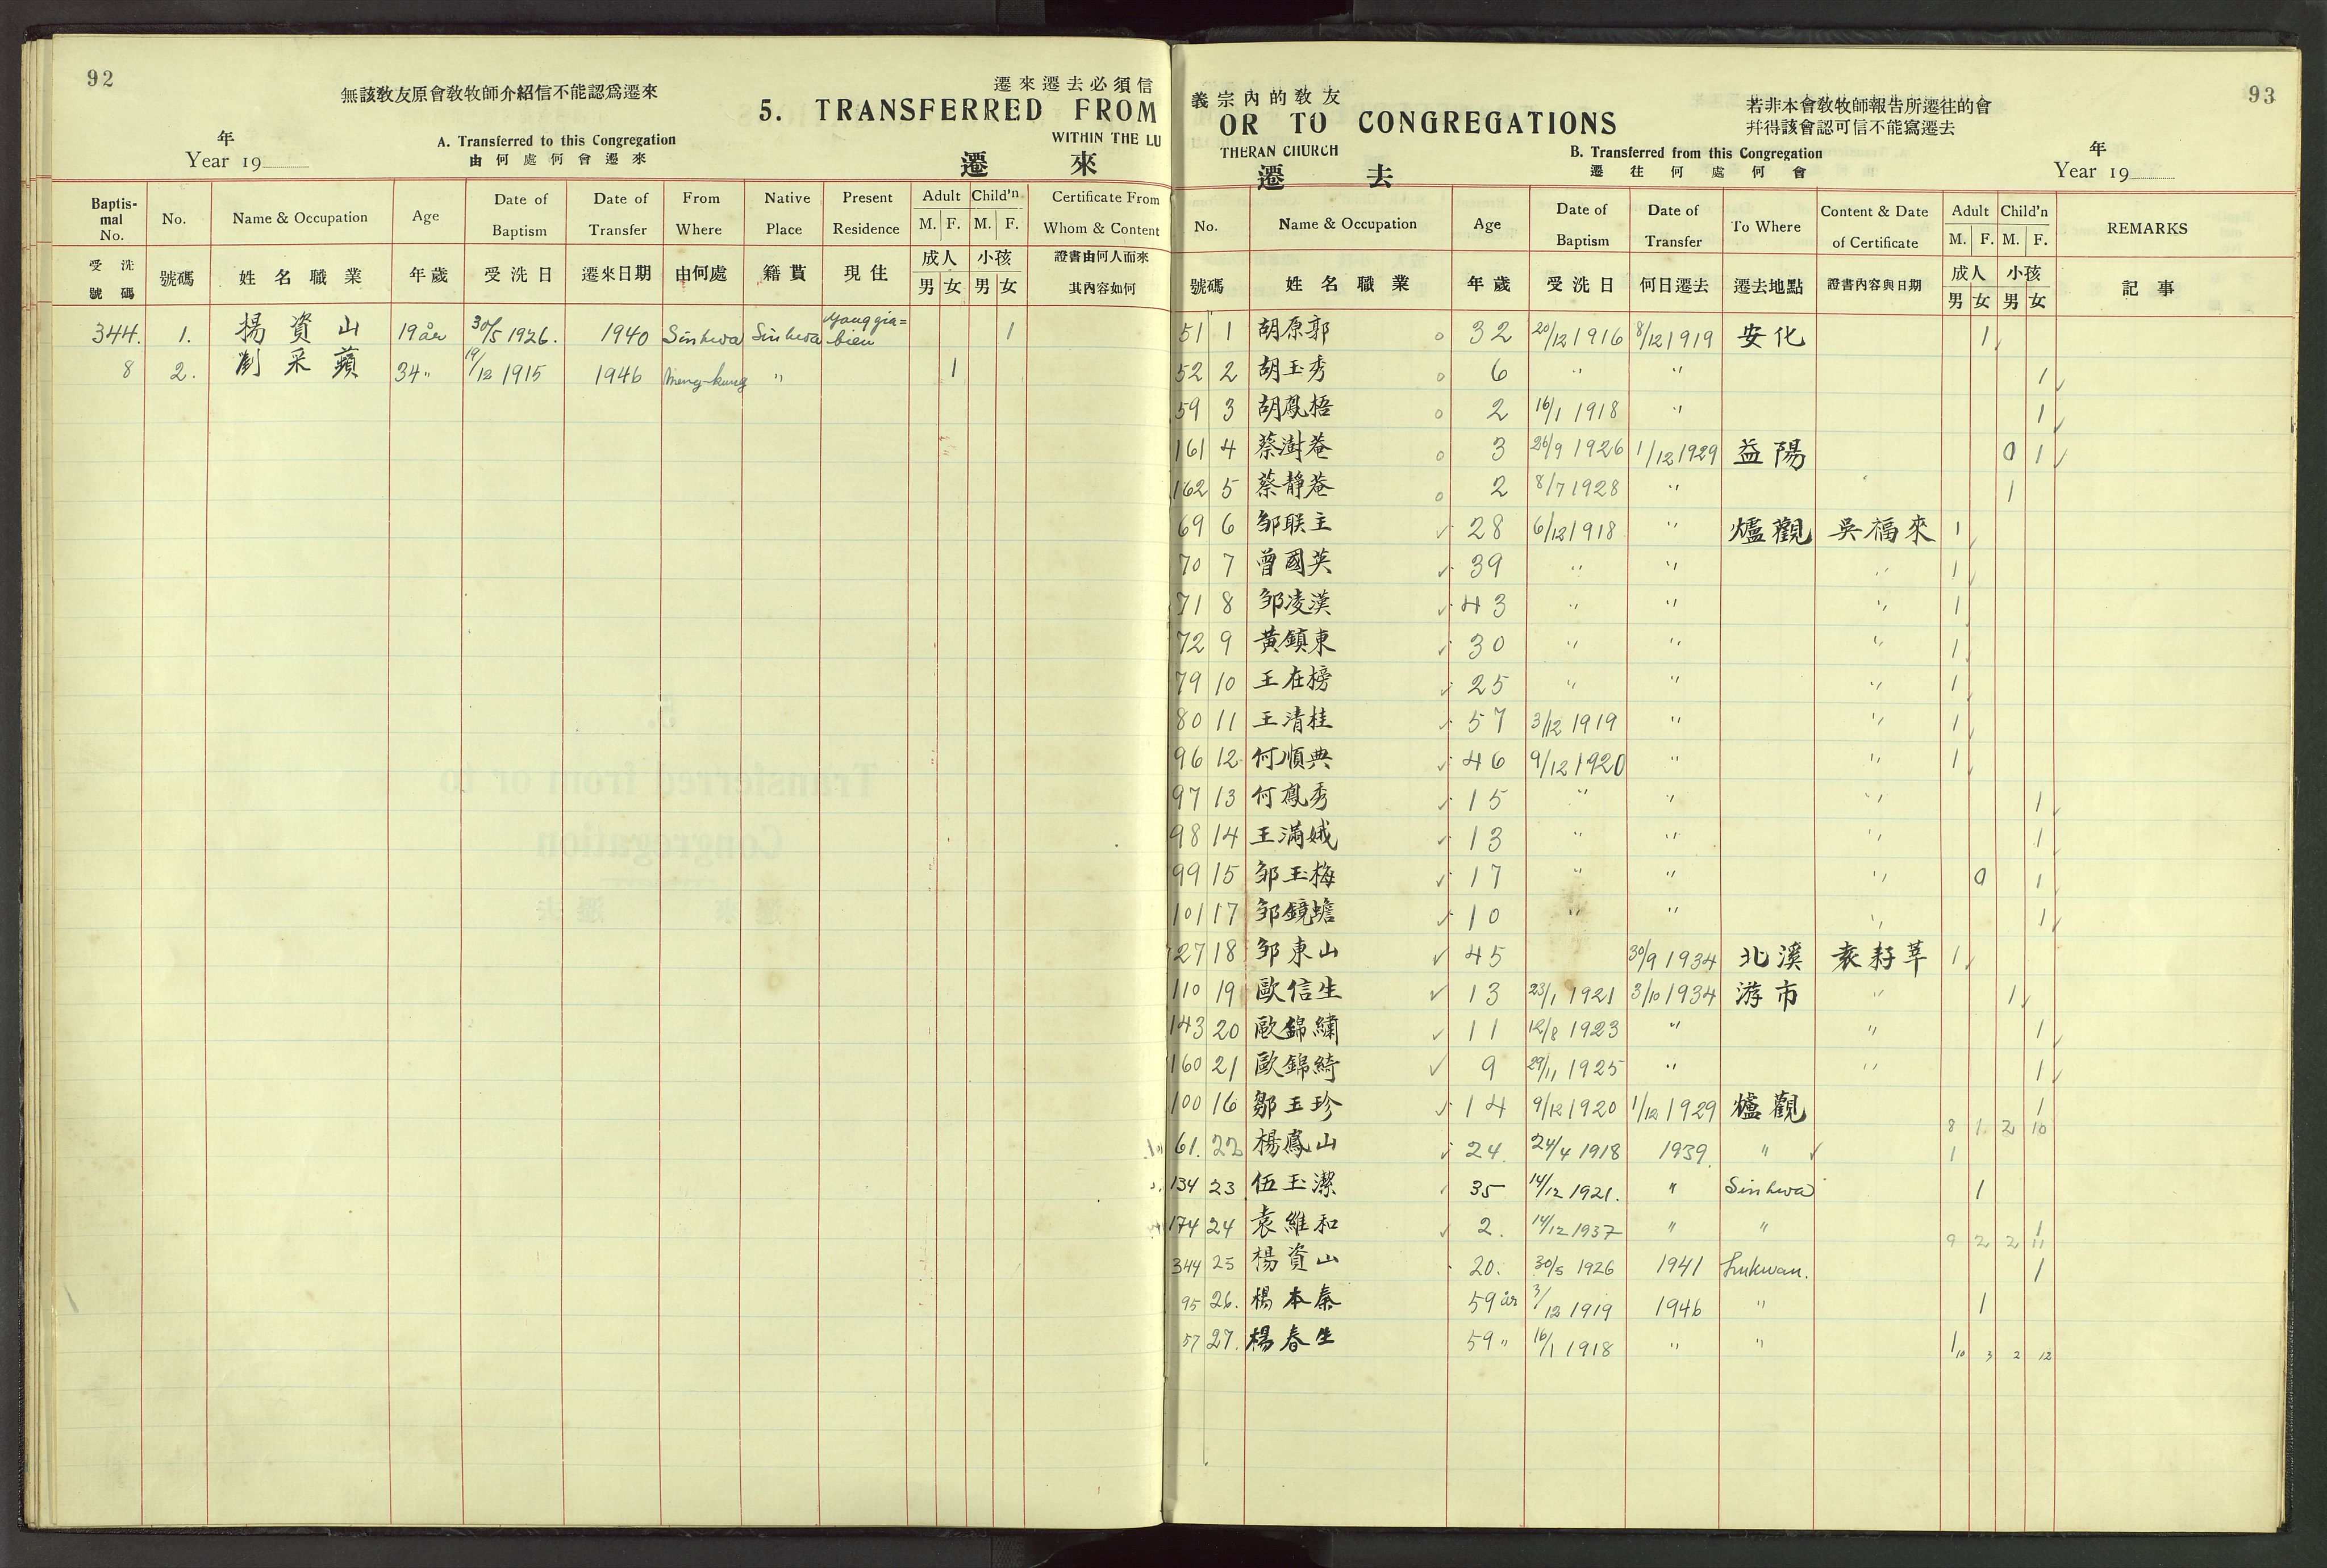 92
無該敎友原會敎牧師介紹信不能認爲遷來
遷來遷去必須信
5. TRANSFERRED FROM
年
Year 19
A. Transferred to this Congregation
由何處何會遷來
WITHIN THE LU
遷 來
Baptis-mal No. No. Name & Occupation Age Date of Baptism Date of Transfer From Where Native Place Present Residence Adult M. F. Child'n M. F. Certificate From Whom & Content
受洗號碼 號碼 姓名職業 年歲 受洗日 遷來日期 由何處 籍貫 現住 成人 男 女 小孩 男 女 證書由何人而來 其內容如何
344. 1. 楊資山 19 år 30/5 1926. 1940 Sinhwa Sinhwa Yanggia=bien 1
8 2. 劉采蘋 34 " 19/12 1915 1946 Meng-kung " 1
93
義宗內的敎友
若非本會敎牧師報告所遷往的會
幷得該會認可信不能寫遷去
OR TO CONGREGATIONS
THERAN CHURCH
遷 去
B. Transferred from this Congregation
遷往何處何會
年
Year 19
No. Name & Occupation Age Date of Baptism Date of Transfer To Where Content & Date of Certificate Adult M. F. Child'n M. F. REMARKS
號碼 姓名職業 年歲 受洗日 何日遷去 遷去地點 證書內容與日期 成人 男 女 小孩 男 女 記事
51 1 胡原郭 32 20/12 1916 8/12 1919 安化 1
52 2 胡玉秀 6 " " 1
59 3 胡鳳梧 2 16/1 1918 " 1
161 4 蔡澍菴 3 26/9 1926 1/12 1929 益陽 0 1
162 5 蔡靜菴 2 8/7 1928 " 1
69 6 邹联主 28 6/12 1918 " 爐觀 吳福來 1
70 7 曾國英 39 " " " 1
71 8 邹凌漢 43 " " " 1
72 9 黃鎮東 30 " " " 1
79 10 王在榜 25 " " " 1
80 11 王清桂 57 3/12 1919 " " 1
96 12 何順典 46 9/12 1920 " " 1
97 13 何鳳秀 15 " " " 1
98 14 王滿娥 13 " " " 1
99 15 邹玉梅 17 " " " 0 1
101 17 邹鏡蟾 10 " " " 1
27 18 邹東山 45 30/9 1934 北溪 袁莘 1
110 19 歐信生 13 23/1 1921 3/10 1934 游市 " 1
143 20 歐錦繡 11 12/8 1923 " " 1
160 21 歐錦綺 9 29/11 1925 " " 1
100 16 鄒玉珍 14 9/12 1920 1/12 1929 爐觀 1
8 1 2 10
61. 22 楊鳳山 24. 24/4 1918 1939. " 1
134 23 伍玉潔 35 14/12 1921. " Sinhwa 1
174 24 袁維和 2. 14/12 1937 " " 1
9 2 2 11
344 25 楊資山 20. 30/5 1926 1941 Lukwan. 1
95 26. 楊本秦 59 år 3/12 1919 1946 " 1
57 27. 楊春生 59 " 16/1 1918 " " 1
10 3 2 12